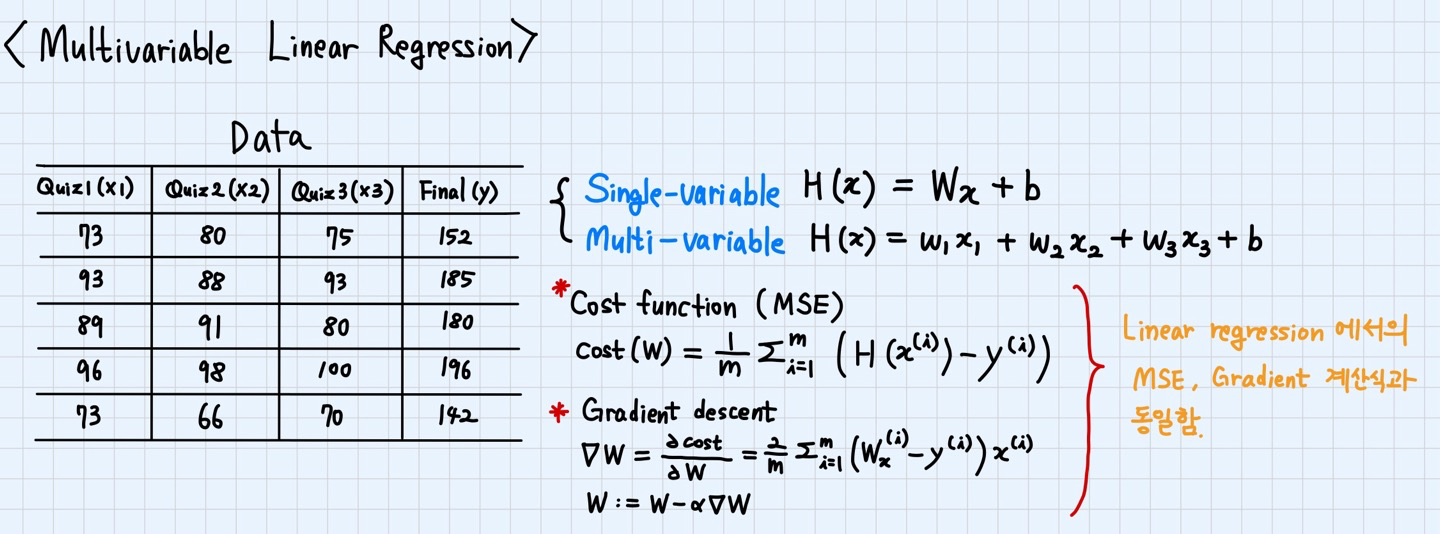 < Multivariable Linear Regression >
Data
Quiz1 (x1) Quiz2 (x2) Quiz3 (x3) Final (y)
73 80 75 152
93 88 93 185
89 91 80 180
96 98 100 196
73 66 70 142
Single-variable H(x) = Wx + b
Multi-variable H(x) = w₁x₁ + w₂x₂ + w₃x₃ + b
* Cost function (MSE)
cost(W) = 1/m Σᵢ₌₁ᵐ (H(x⁽ⁱ⁾) - y⁽ⁱ⁾)
* Gradient descent
∇W = ∂cost/∂W = 2/m Σᵢ₌₁ᵐ (Wx⁽ⁱ⁾ - y⁽ⁱ⁾) x⁽ⁱ⁾
W := W - α∇W
Linear regression 에서의
MSE, Gradient 계산식과
동일함.